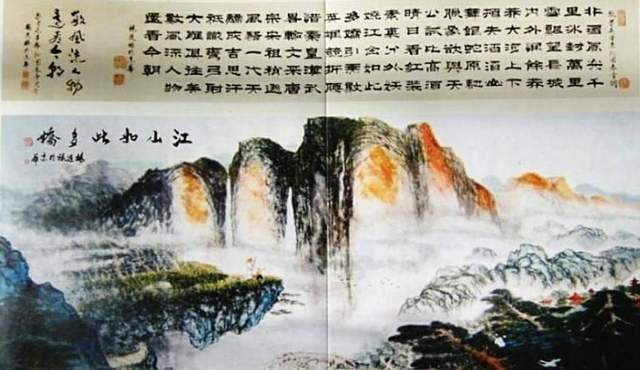 北國風光千
里冰封萬里
雪飄望長城
內外惟餘莽
莽大河上下
頓失滔滔山
舞銀蛇原馳
蠟象欲與天
公試比高須
晴日看紅裝
素裹分外妖
嬈江山如此
多嬌引無數
英雄競折腰
惜秦皇漢武
略輸文采唐
宗宋祖稍遜
風騷一代天
驕成吉思汗
只識彎弓射
大雕俱往矣
數風流人物
還看今朝
數風流人物
還看今朝
江山如此多嬌